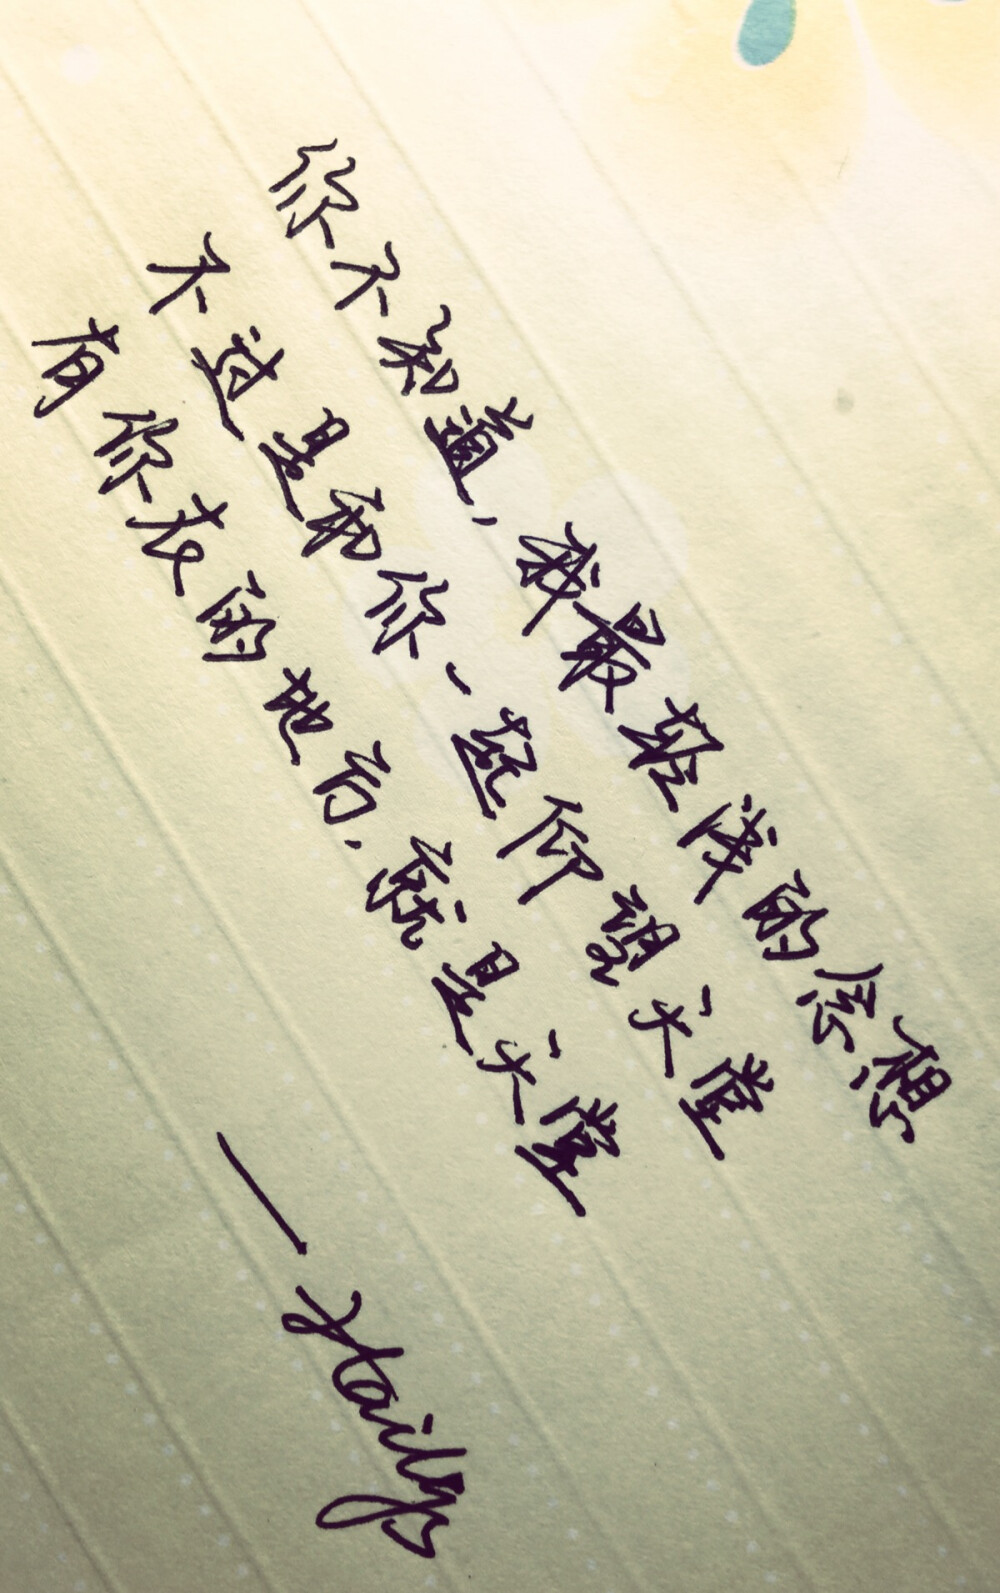 你不知道，我最轻浅的念想
不过是和你一起仰望天堂
有你在的地方，就是天堂
——Haily